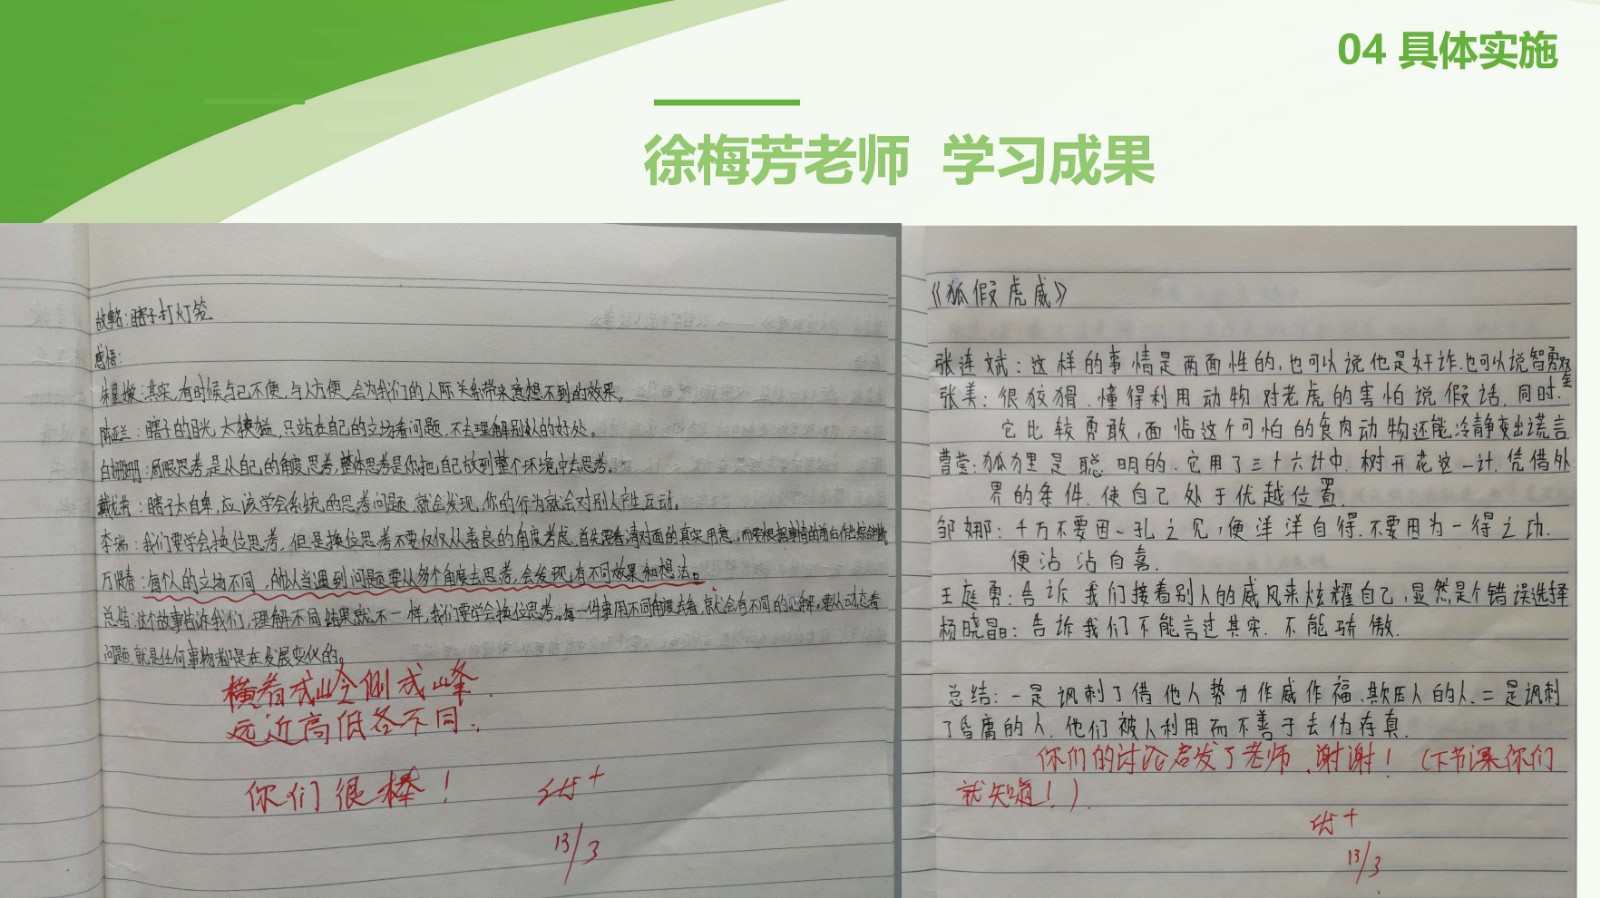 04 具体实施
徐梅芳老师 学习成果
故事名：瞎子打灯笼
感悟：
其实，有时候与己不便，与人方便，会为我们的人际关系带来意想不到的效果。
瞎子的目光太狭隘，只站在自己的立场看问题，不去理解别人的好处。
白姗姗：局限思考是从自己的角度思考，整体思考是你把自己放到整个环境中去思考。
瞎子太自卑，应该学会系统的思考问题，就会发现，你的行为就会对别人产生互动。
李瑞：我们要学会换位思考，但是换位思考不要仅仅从善良的角度考虑，首先要看清对面的真实用意，而要根据事情的
每个人的立场不同，所以当遇到问题要从多个角度去思考，会发现有不同效果和想法。
总结：这个故事告诉我们，理解不同，结果就不一样，我们要学会换位思考。每一件事用不同角度去看，就会有不同的见解，要从动态看
问题，就是任何事物都是在发展变化的。
横看成岭侧成峰，
远近高低各不同。
你们很棒！
优+
13/3
《狐假虎威》
张连斌：这样的事情是两面性的，也可以说他是奸诈，也可以说智勇双全
张美：很狡猾，懂得利用动物对老虎的害怕说假话，同时，
它比较勇敢，面临这个可怕的食肉动物还能冷静变出谎言
曹莹：狐狸是聪明的，它用了三十六计中，树开花这一计，凭借外
界的条件，使自己处于优越位置
邹娜：千万不要因一孔之见，便洋洋自得，不要因为一得之功，
便沾沾自喜.
王庭勇：告诉我们接着别人的威风来炫耀自己，显然是个错误选择
杨晓晶：告诉我们不能言过其实，不能骄傲.
总结：一是讽刺了借他人势力作威作福，欺压人的人，二是讽刺
了昏庸的人，他们被人利用而不善于去伪存真.
你们的讨论启发了老师，谢谢！（下节课你们
就知道！）
优+
13/3